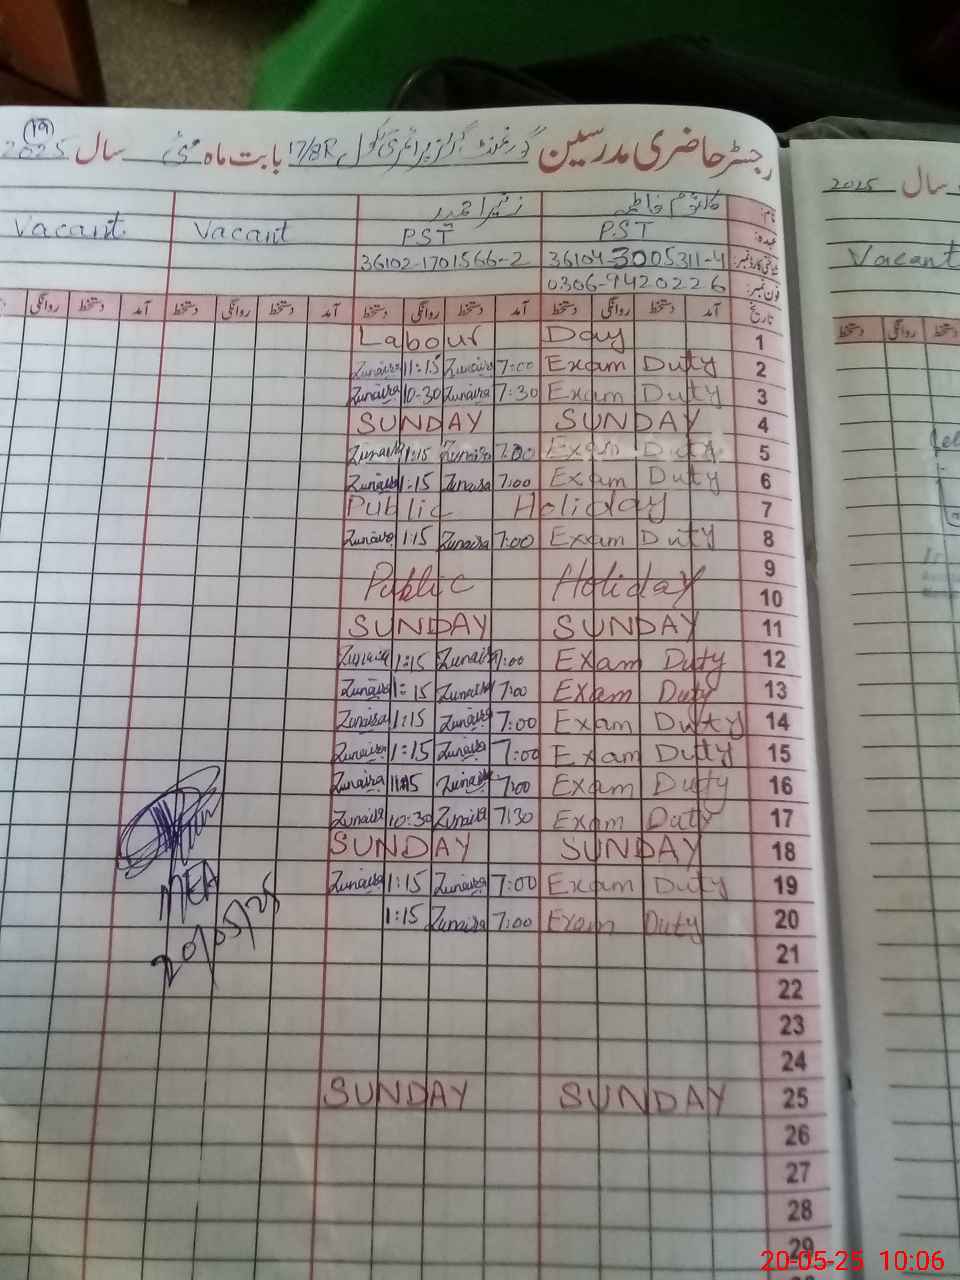 رجسٹر حاضری مدرسین گورنمنٹ گرلز پرائمری سکول 17/8R بابت ماہ مئی سال 2025
19
سال 2025
نام:
Vacant Vacant
عہدہ: PST PST
Vacant
شناختی کارڈ نمبر: 36104-3005311-4 36102-1701566-2
فون نمبر: 0306-9420226
تاریخ آمد دستخط روانگی دستخط آمد دستخط روانگی دستخط آمد دستخط روانگی دستخط آمد دستخط روانگی
دستخط روانگی دستخط
Labour Day 1
Zunaira 11:15 Zunaira 7:00 Exam Duty 2
Zunaira 10-30 Zunaira 7:30 Exam Duty 3
SUNDAY SUNDAY 4
Zunaira 1:15 Zunaira 7:00 Exam Duty 5
Zunaira 1:15 Zunaira 7:00 Exam Duty 6
Public Holiday 7
Zunaira 1:15 Zunaira 7:00 Exam Duty 8
9
Public Holiday
10
SUNDAY SUNDAY 11
Zunaira 1:15 Zunaira 7:00 Exam Duty 12
Zunaira 1:15 Zunaira 7:00 Exam Duty 13
Zunaira 1:15 Zunaira 7:00 Exam Duty 14
Zunaira 1:15 Zunaira 7:00 Exam Duty 15
Zunaira 11:15 Zunaira 7:00 Exam Duty 16
Zunaira 10:30 Zunaira 7:30 Exam Duty 17
SUNDAY SUNDAY 18
Zunaira 1:15 Zunaira 7:00 Exam Duty 19
MEA
1:15 Zunaira 7:00 Exam Duty 20
20/05/25
21
22
23
24
SUNDAY SUNDAY 25
26
27
28
29
20-05-25 10:06